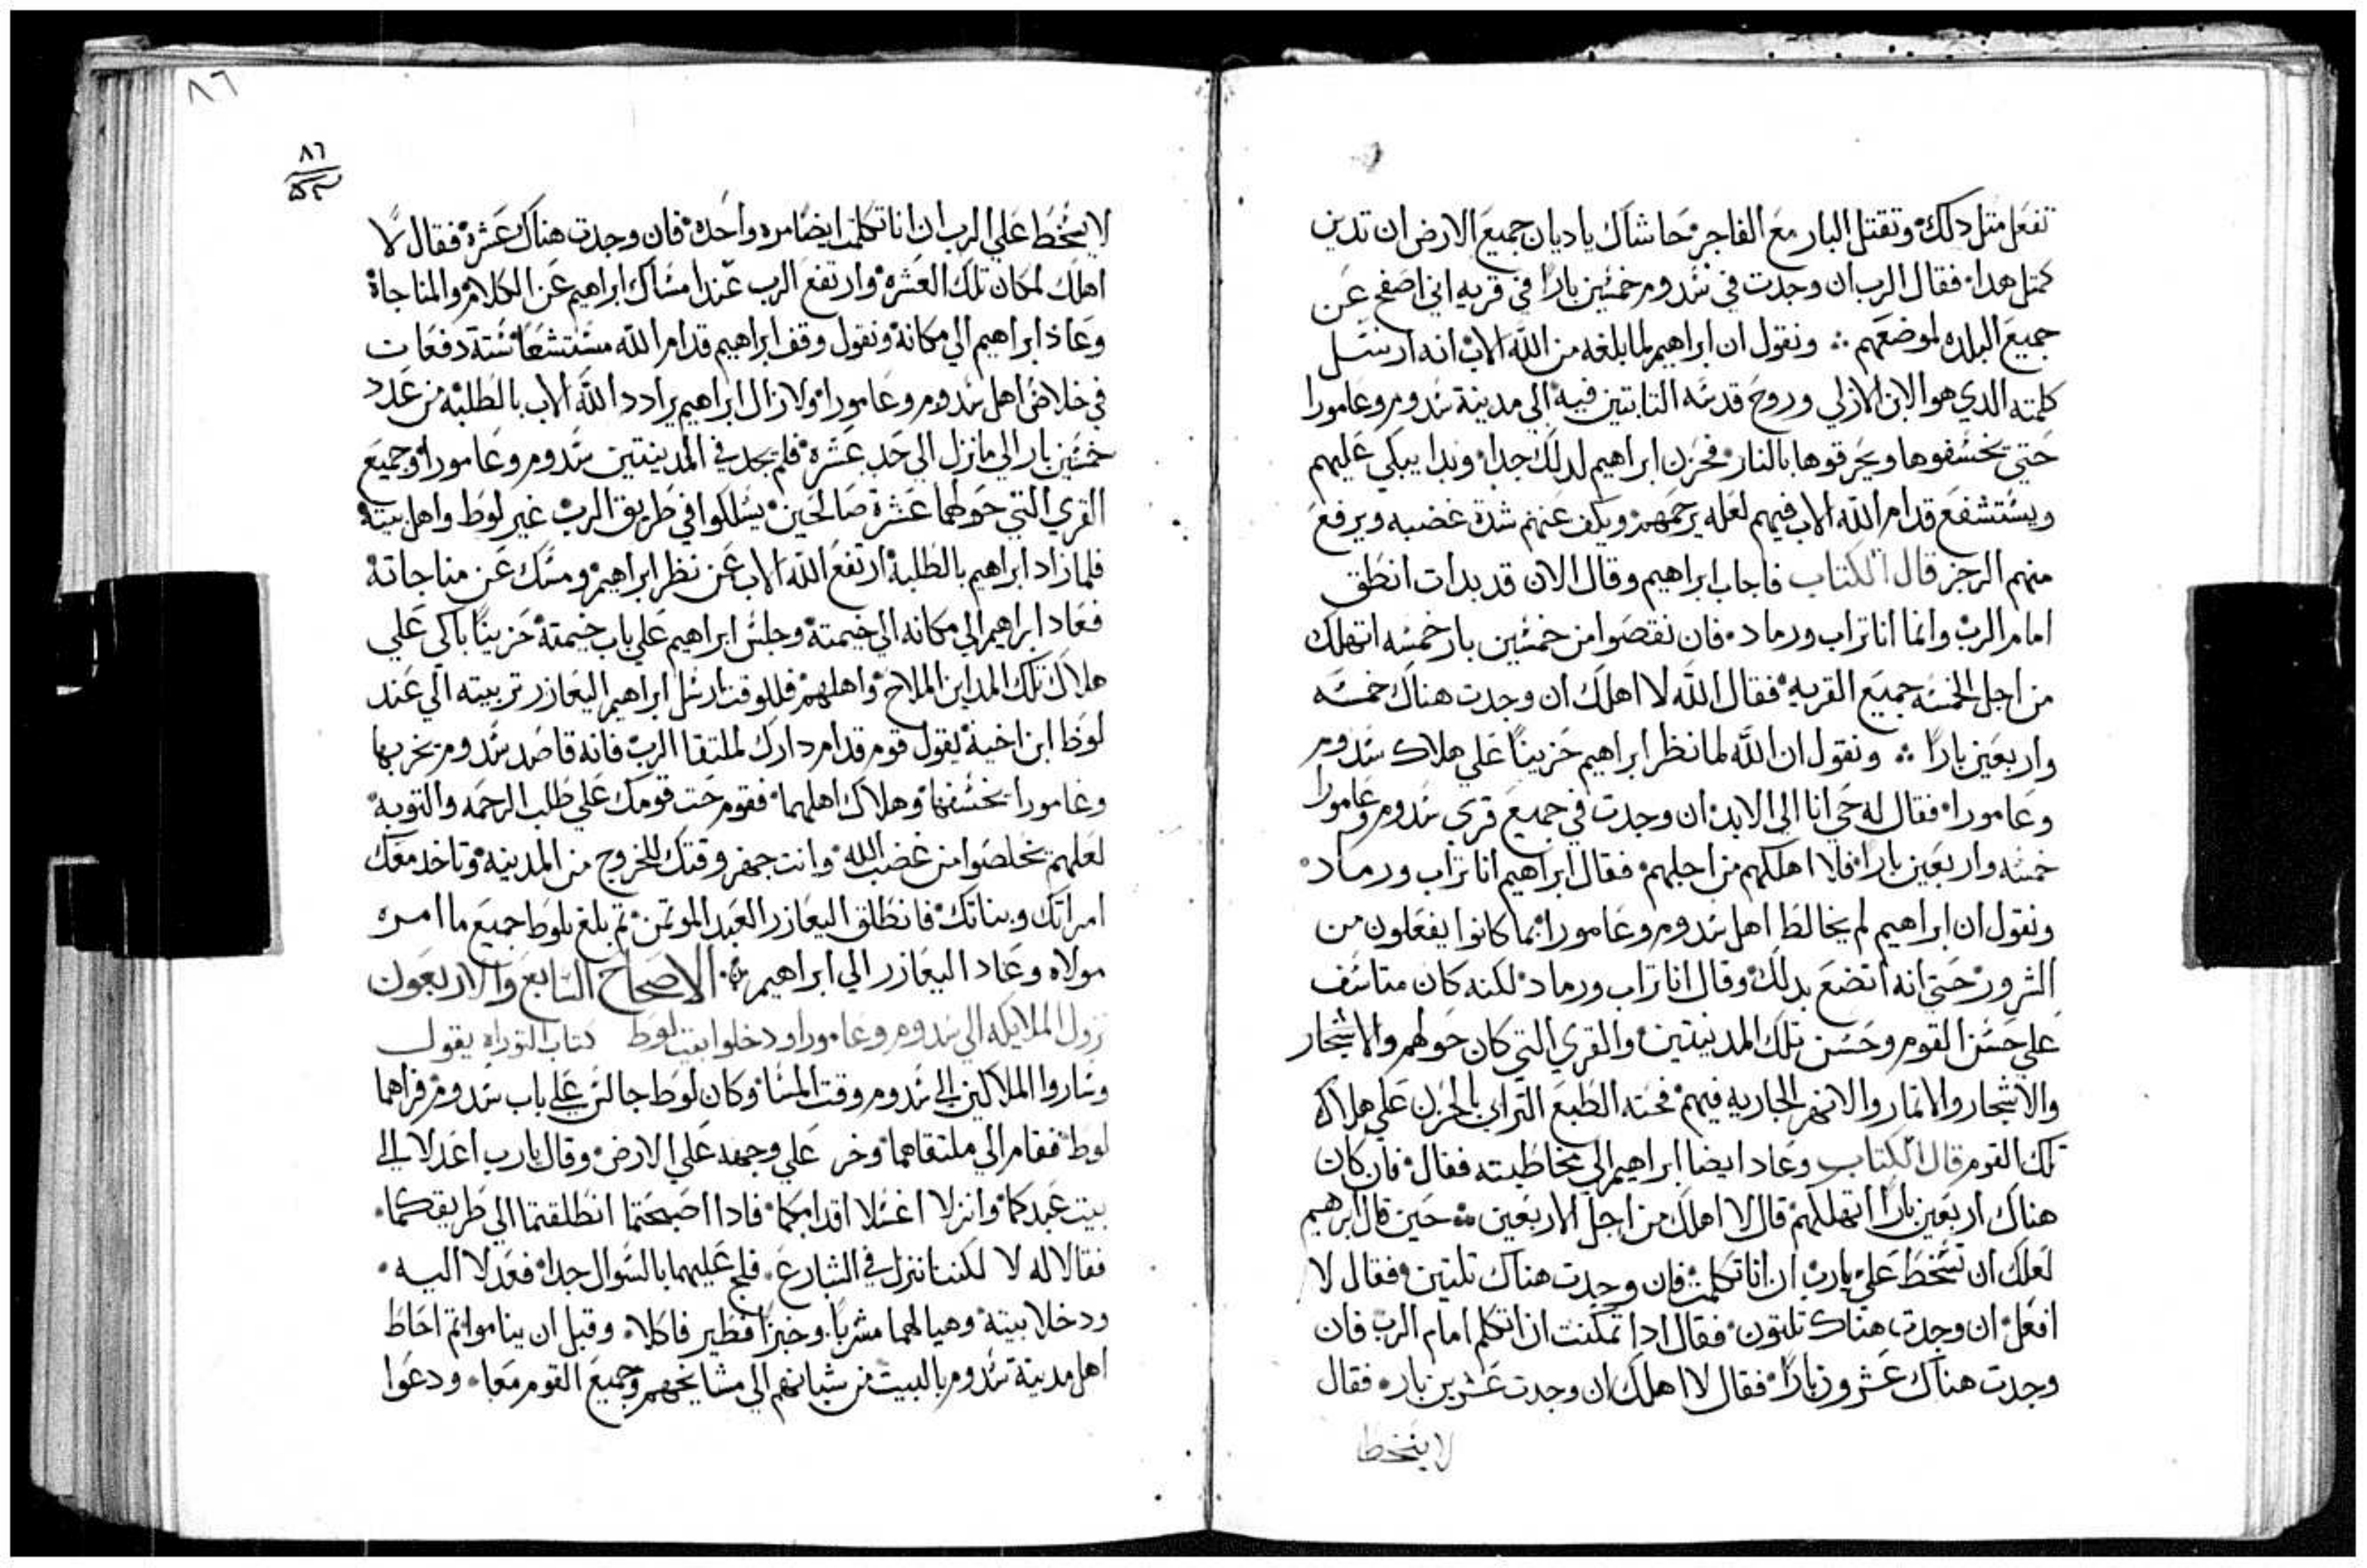 تفعل متل دلك وتقتل البار مع الفاجر حاشاك ياديان جميع الارض ان تدين
كمتل هدا فقال الرب ان وجدت في سدوم خمسين بارا في قريه اني اصفح عن
جميع البلده لموضعهم ونقول ان ابراهيم لما بلغه من الله الاب انه ارسل
كلمته الدي هو الابن الازلي وروح قدسه التابتين فيه الي مدينة سدوم وعامورا
حتي يخسفوها ويحرقوها بالنار فحزن ابراهيم لدلك جدا وبدا يبكي عليهم
ويستشفع قدام الله الاب فيهم لعله يرحمهم ويكف عنهم شدة غضبه ويرفع
منهم الرجز قال الكتاب فاجاب ابراهيم وقال الان قد بدات انطق
امام الرب وانما انا تراب ورماد فان نقصوا من خمسين بار خمسه اتهلك
من اجل الخمسه جميع القريه فقال الله لا اهلك ان وجدت هناك خمسه
واربعين بارا ونقول ان الله لما نظر ابراهيم حزينا علي هلاك سدوم
وعامورا فقال له حي انا الي الابد ان وجدت في جميع قري سدوم وعامورا
خمسه واربعين بارا فلا اهلكهم من اجلهم فقال ابراهيم انا تراب ورماد
ونقول ان ابراهيم لم يخالط اهل سدوم وعامورا بما كانوا يفعلون من
الشرور حتي انه اتضع بدلك وقال انا تراب ورماد لكنه كان متاسف
علي حسن القوم وحسن تلك المدينتين والقري التي كان حولهم والاشجار
والاشجار والاتمار والانهر الجاريه فيهم فحنه الطبع الترابي بالحزن علي هلاك
تلك القوم قال الكتاب وعاد ايضا ابراهيم الي مخاطبته فقال فان كان
هناك اربعين بارا اتهلكهم قال لا اهلك من اجل الاربعين حين قال ابرهيم
لعلك ان تسخط علي يارب ان انا تكلمت فان وجدت هناك تلتين فقال لا
افعل ان وجدت هناك تلتون فقال ادا تمكنت ان اتكلم امام الرب فان
وجدت هناك عشرون بارا فقال لا اهلك ان وجدت عشرين بار فقال
لا يسخط
٨٦
٨٦
لا يسخط علي الرب ان انا تكلمت ايضا مره واحده فان وجدت هناك عشرة فقال لا
اهلك لمكان تلك العشره وارتفع الرب عند امساك ابراهيم عن الكلام والمناجاة
وعاد ابراهيم الي مكانه ونقول وقف ابراهيم قدام الله مستشفعا ستة دفعات
في خلاص اهل سدوم وعامورا ولا زال ابراهيم يرادد الله الاب بالطلبة من عدد
خمسين بار الي ما نزل الي حد عشره فلم يجد في المدينتين سدوم وعامورا وجميع
القري التي حولهما عشرة صالحين يسلكوا في طريق الرب غير لوط واهل بيته
فلما زاد ابراهيم بالطلبة ارتفع الله الاب عن نظر ابراهيم ومسك عن مناجاته
فعاد ابراهيم الي مكانه الي خيمته وجلس ابراهيم علي باب خيمته حزينا باكي علي
هلاك تلك المداين الملاح واهلهم فللوقت ارسل ابراهيم اليعازر تربيته الي عند
لوط ابن اخيه يقول قوم قدام دارك لملتقا الرب فانه قاصد سدوم يخربها
وعامورا يخسفها وهلاك اهلهما فقوم حت قومك علي طلب الرحمه والتوبه
لعلهم يخلصوا من غضب الله وانت جهز وقتك للخروج من المدينه وتاخد معك
امراتك وبناتك فانطلق اليعازر العبد الموتمن تم بلغ بلوط جميع ما امره
مولاه وعاد اليعازر الي ابراهيم الاصحاح السابع والاربعون
نزول الملايكه الي سدوم وعامورا ودخلوا بيت لوط كتاب التوراه يقول
وساروا الملاكين الي سدوم وقت المسا وكان لوط جالس علي باب سدوم فراهما
لوط فقام الي ملتقاهما وخر علي وجهه علي الارض وقال يارب اعدلا الي
بيت عبدكما وانزلا اغسلا اقدامكما فادا اصبحتما انطلقتما الي طريقكما
فقالا له لا لكننا ننزل في الشارع فلج عليهما بالسوال جدا فعدلا اليه
ودخلا بيته وهيا لهما مشربا وخبزا فطير فاكلا وقبل ان يناموا تم احاط
اهل مدينة سدوم بالبيت من شبانهم الي مشايخهم وجميع القوم معا ودعوا